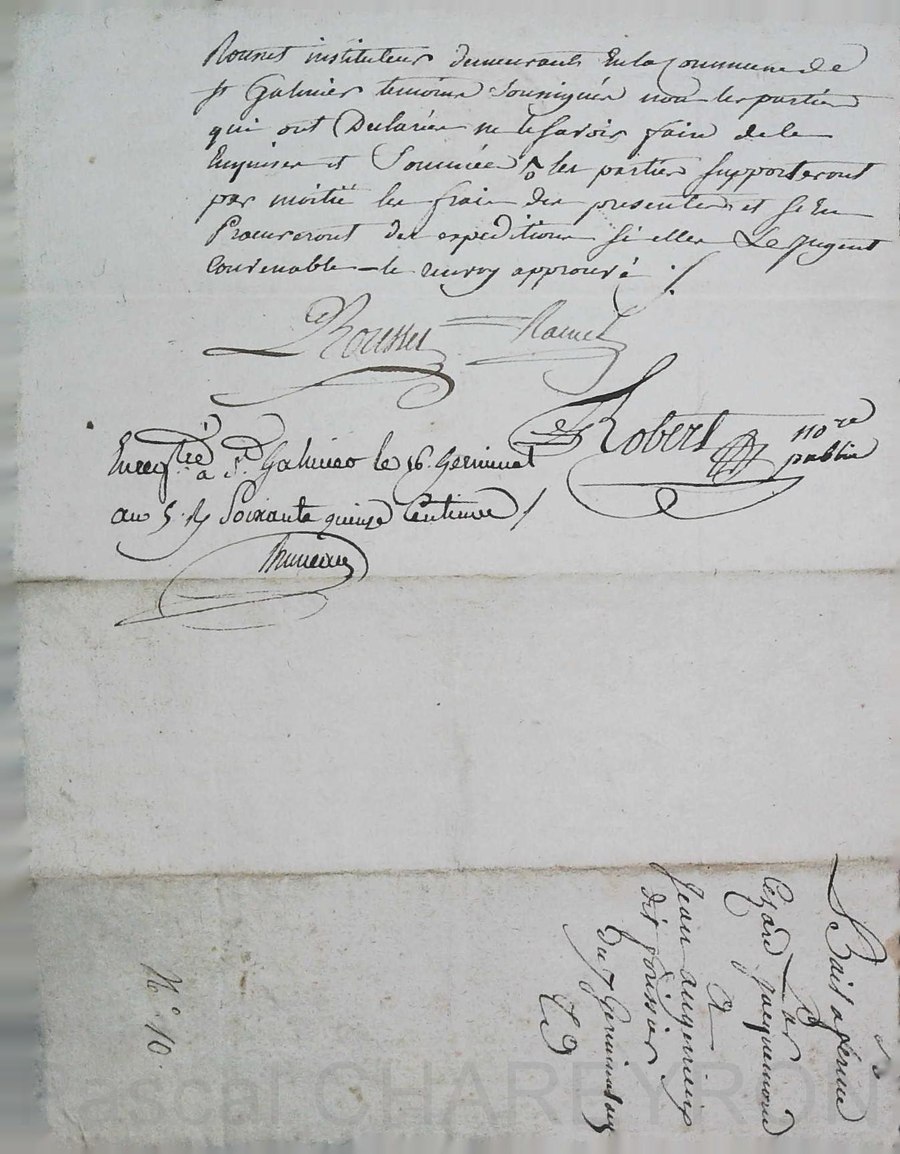 Rouset instituteur demeurants En la Commune de
st Galmier temoins Soussignés non les parties
qui ont Declarées ne le Savoir faire de le
Enquises et Sommées les parties supporteront
par moitié les frais des presentes et s'en
Procureront des expeditions si elles Le Jugent
Convenable le renvoy approuvé
Rousset
Robert nore
public
Enregtré a St Galmier le 16 Germinal
an 5. Soixante quinze Centimes
Bail a ferme
Par
Cézard Jacquemond
A
Jean augenieux
dit
Du 7 Germinal an 5
N° 10.
Pascal CHAREYRON